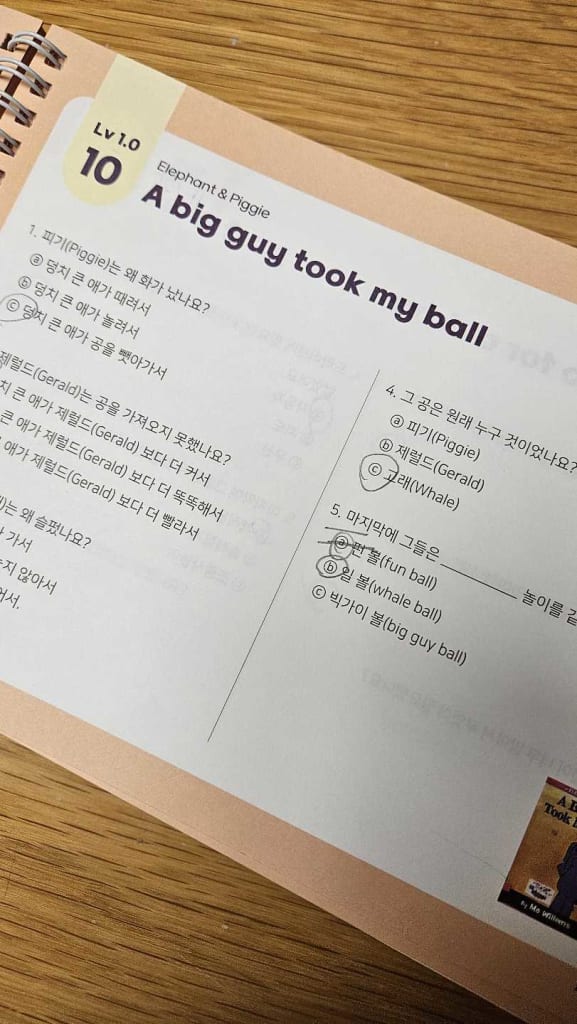 Lv 1.0
10
Elephant & Piggie
A big guy took my ball
1. 피기(Piggie)는 왜 화가 났나요?
ⓐ 덩치 큰 애가 때려서
ⓑ 덩치 큰 애가 놀려서
ⓒ 덩치 큰 애가 공을 뺏아가서
제럴드(Gerald)는 공을 가져오지 못했나요?
큰 애가 제럴드(Gerald) 보다 더 커서
큰 애가 제럴드(Gerald) 보다 더 똑똑해서
애가 제럴드(Gerald) 보다 더 빨라서
는 왜 슬펐나요?
가서
않아서
4. 그 공은 원래 누구 것이었나요?
ⓐ 피기(Piggie)
ⓑ 제럴드(Gerald)
ⓒ 고래(Whale)
5. 마지막에 그들은 ________ 놀이를
ⓐ 펀 볼(fun ball)
ⓑ 웨일 볼(whale ball)
ⓒ 빅가이 볼(big guy ball)
Took
By Mo Willems